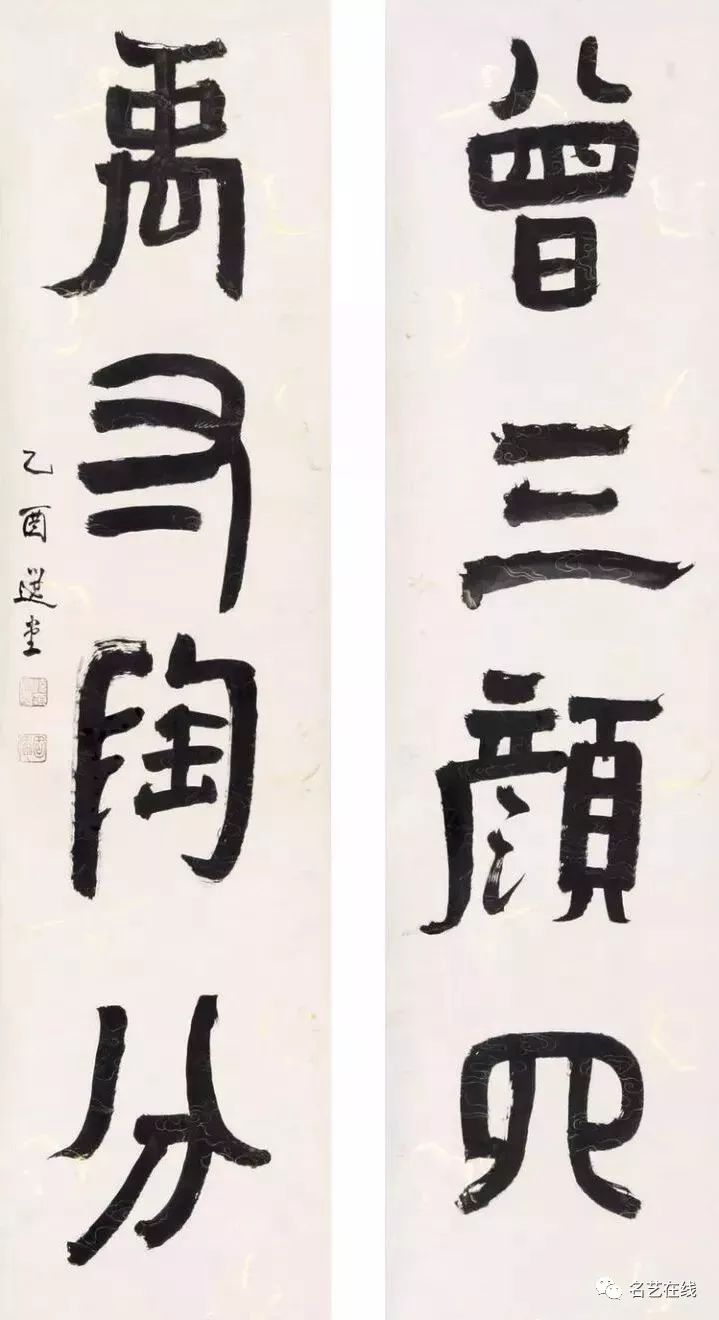 曾三顏四
禹寸陶分
乙酉選堂
名艺在线